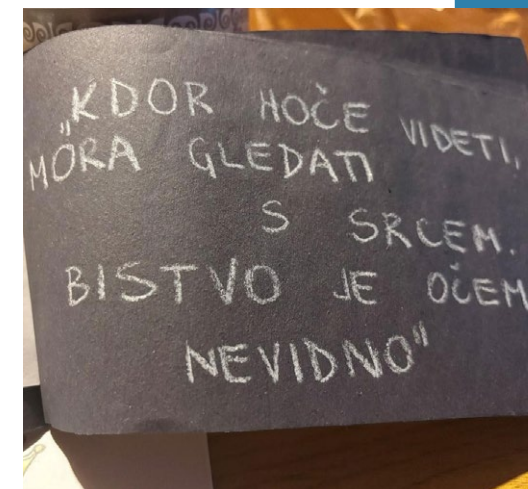 „KDOR HOČE VIDETI,
MORA GLEDATI
S SRCEM.
BISTVO JE OČEM
NEVIDNO"